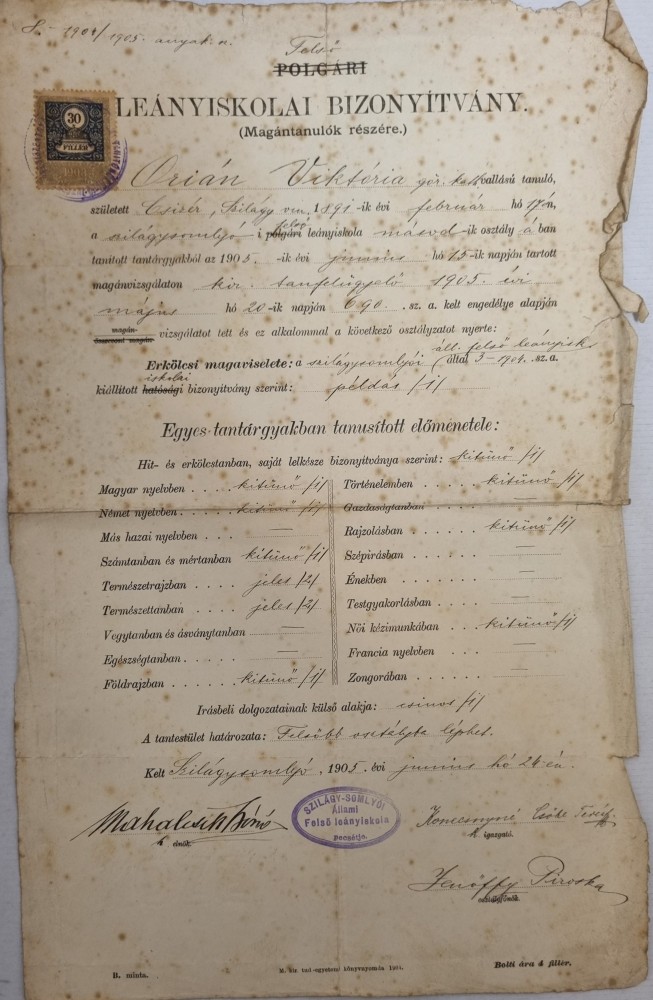 1904/1905. anyak. n.
Felső
POLGÁRI
LEÁNYISKOLAI BIZONYÍTVÁNY.
(Magántanulók részére.)
30
FILLÉR
Orián Viktória gör. kath vallású tanuló,
született Csizér, Szilágy vm., 1891-ik évi február hó 17-én,
a szilágysomlyó i polgári felső leányiskola másod-ik osztály á ban
tanított tantárgyakból az 1905. -ik évi junius hó 15-ik napján tartott
magánvizsgálaton kir. tanfelügyelő 1905. évi
május hó 20-ik napján 690. sz. a. kelt engedélye alapján
magán-
összevont magán- vizsgálatot tett és ez alkalommal a következő osztályzatot nyerte:
Erkölcsi magaviselete: a szilágysomlyói áll. felső leányisk. által 3-1904. sz. a.
kiállított hatósági iskolai bizonyítvány szerint: példás /1/
Egyes tantárgyakban tanusított előmenetele:
Hit- és erkölcstanban, saját lelkésze bizonyítványa szerint: kitünő /1/
Magyar nyelvben . . . . kitünő /1/
Német nyelvben . . . . kitünő /1/
Más hazai nyelvben . . . —
Számtanban és mértanban kitünő /1/
Természetrajzban . . . . jeles /2/
Természettanban . . . . jeles /2/
Vegytanban és ásványtanban —
Egészségtanban . . . . . —
Földrajzban . . . . . . kitünő /1/
Történelemben . . . . . kitünő /1/
Gazdaságtanban . . . . . —
Rajzolásban . . . . . . kitünő /1/
Szépírásban . . . . . . —
Énekben . . . . . . . —
Testgyakorlásban . . . . —
Női kézimunkában . . . kitünő /1/
Francia nyelvben . . . —
Zongorában . . . . . . —
Irásbeli dolgozatainak külső alakja: csinos /1/
A tantestület határozata: Felsőbb osztályba léphet.
Kelt Szilágysomlyó, 1905. évi junius hó 24-én.
elnök.
SZILÁGY-SOMLYÓI
Állami
Felső leányiskola
pecsétje.
igazgató.
Jenőffy Piroska
osztályfőnök.
B. minta.
M. kir. tud.-egyetemi könyvnyomda 1904.
Bolti ára 4 fillér.